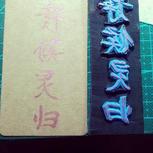 静候灵归
静候灵归